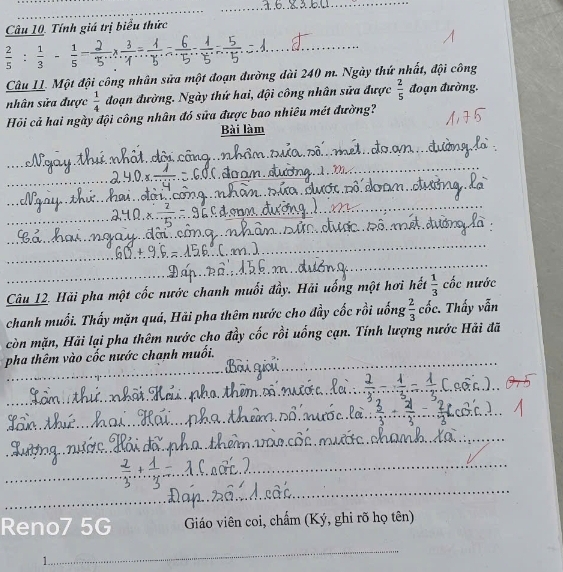 Câu 10. Tính giá trị biểu thức
2/5 : 1/3 - 1/5 = 2/5 × 3/1 - 1/5 = 6/5 - 1/5 = 5/5 = 1 đ 1
Câu 11. Một đội công nhân sửa một đoạn đường dài 240 m. Ngày thứ nhất, đội công
nhân sửa được 1/4 đoạn đường. Ngày thứ hai, đội công nhân sửa được 2/5 đoạn đường.
Hỏi cả hai ngày đội công nhân đó sửa được bao nhiêu mét đường?
1,75
Bài làm
Ngày thứ nhất đội công nhân sửa số mét đoạn đường là:
240 × 1/4 = 60 ( đoạn đường ) m
Ngày thứ hai đội công nhân sửa được số đoạn đường là
240 × 2/5 = 96 ( đoạn đường ) m
Cả hai ngày đội công nhân sửa được số mét đường là:
60 + 96 = 156 ( m )
Đáp số: 156 m đường
Câu 12. Hải pha một cốc nước chanh muối đầy. Hải uống một hơi hết 1/3 cốc nước
chanh muối. Thấy mặn quá, Hải pha thêm nước cho đầy cốc rồi uống 2/3 cốc. Thấy vẫn
còn mặn, Hải lại pha thêm nước cho đầy cốc rồi uống cạn. Tính lượng nước Hải đã
pha thêm vào cốc nước chanh muối.
Bài giải
Lần thứ nhất Hải pha thêm số nước là:
Lần thứ hai Hải pha thêm số nước là
1
Lượng nước Hải đã pha thêm vào cốc nước chanh là
2/3 + 1/3 = 1 ( cốc )
Đáp số: 1 cốc
Reno7 5G
Giáo viên coi, chấm (Ký, ghi rõ họ tên)
1